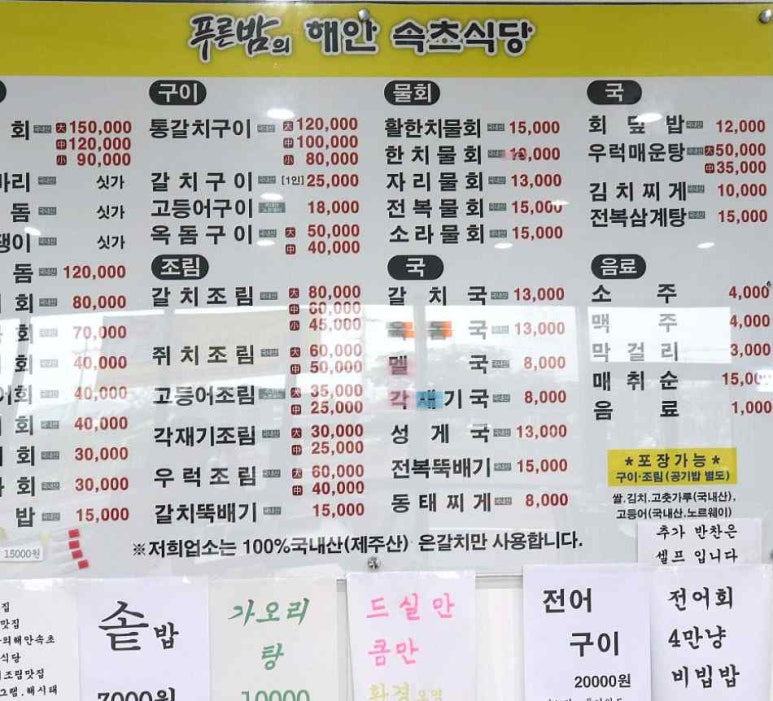 푸른밤의 해안 속초식당
회 大 150,000
中 120,000
小 90,000
바리 싯가
돔 싯가
쟁이 싯가
돔 120,000
회 80,000
회 70,000
회 40,000
어회 40,000
회 40,000
회 30,000
회 30,000
밥 15,000
15000원
구이
통갈치구이 大 120,000
中 100,000
小 80,000
갈치구이 [1인] 25,000
고등어구이 18,000
옥돔구이 大 50,000
中 40,000
조림
갈치조림 大 80,000
中 60,000
小 45,000
쥐치조림 大 60,000
中 50,000
고등어조림 大 35,000
中 25,000
각재기조림 大 30,000
中 25,000
우럭조림 大 60,000
中 40,000
갈치뚝배기 15,000
물회
활한치물회 15,000
한치물회
자리물회 13,000
전복물회 15,000
소라물회 15,000
국
갈치국 13,000
옥돔국 13,000
멜국 8,000
각재기국 8,000
성게국 13,000
전복뚝배기 15,000
동태찌게 8,000
국
회덮밥 12,000
우럭매운탕 大 50,000
中 35,000
김치찌게 10,000
전복삼계탕 15,000
음료
소주 4,000
맥주 4,000
막걸리 3,000
매취순 15,00
음료 1,000
★포장가능★
구이·조림(공기밥 별도)
쌀.김치.고춧가루(국내산),
고등어(국내산.노르웨이)
※저희업소는 100%국내산(제주산) 은갈치만 사용합니다.
추가 반찬은
셀프 입니다
집
맛집
의해안속초
식당
조림맛집
그램.해시태
솥밥
7000원
가오리
탕
10000
드실만
큼만
환경
전어
구이
20000원
전어회
4만냥
비빔밥